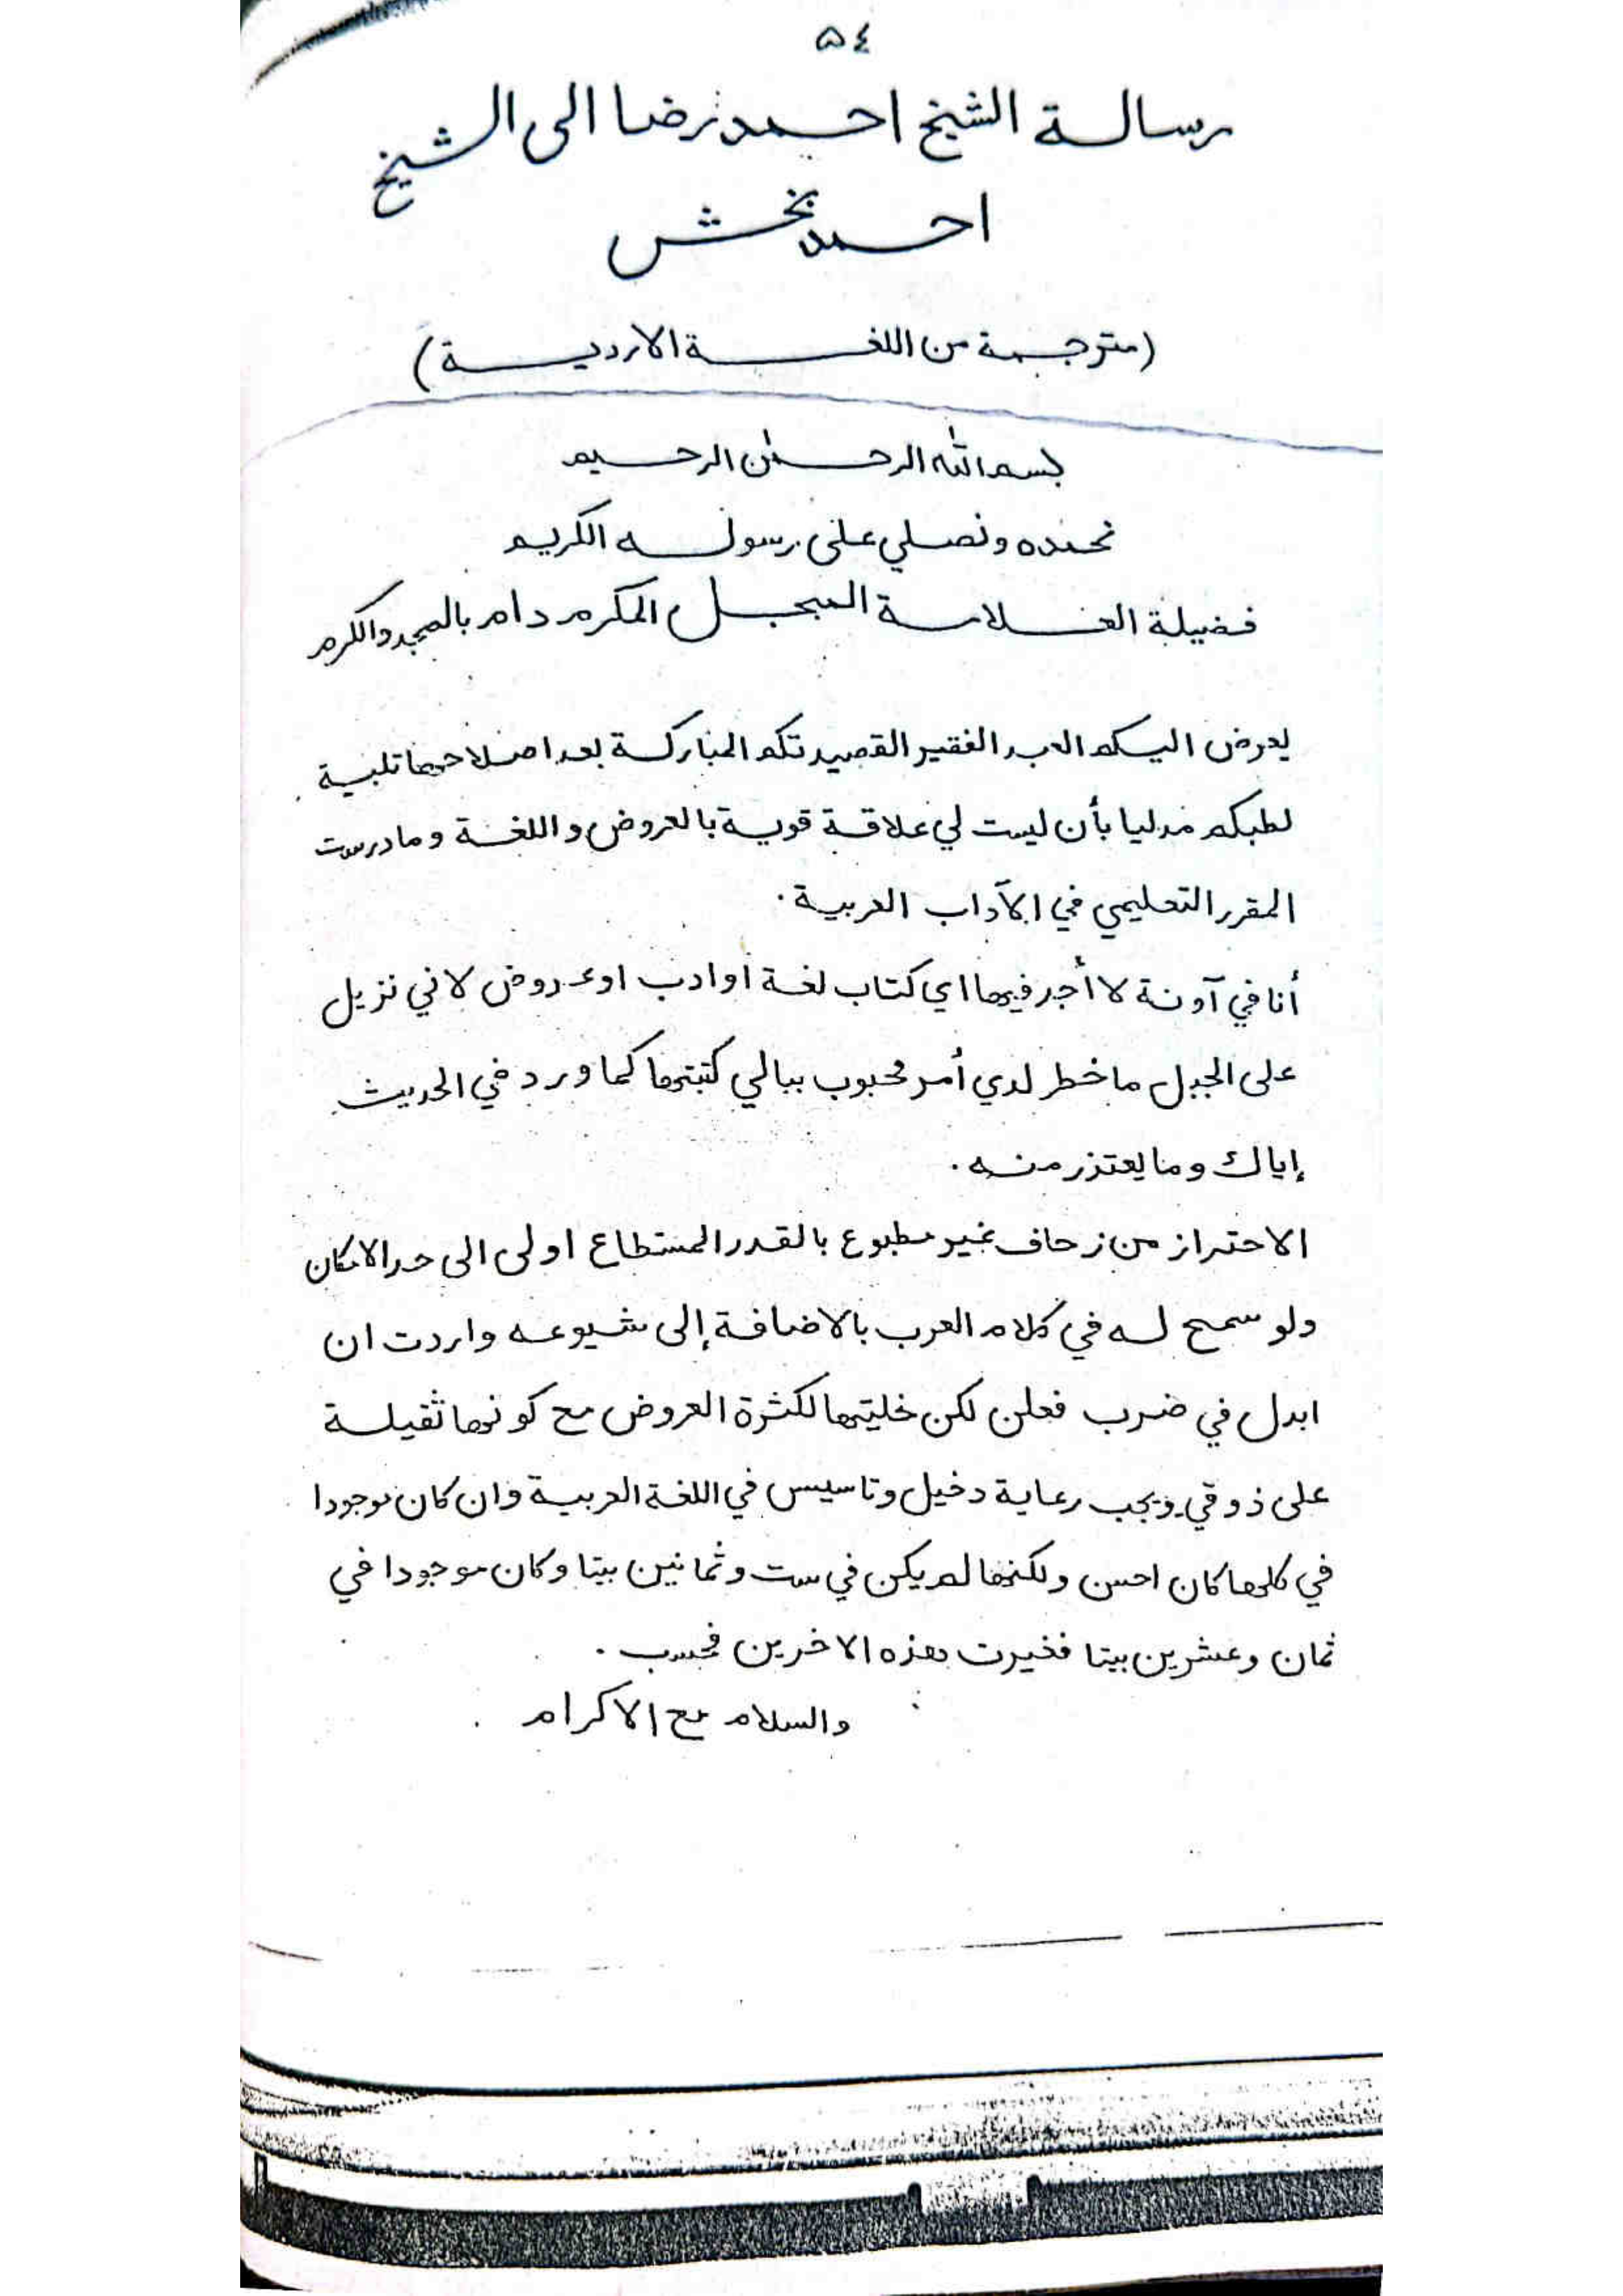 ٥٤
رسالة الشيخ احمد رضا الى الشيخ
احمد بخش
(مترجمة من اللغة الاردية)
بسم الله الرحمٰن الرحيم
نحمده ونصلي على رسوله الكريم
فضيلة العلامة المبجل المكرم دام بالمجد والكرم
يعرض اليكم العبد الفقير القصيدتكم المباركة بعد اصلاحها تلبية
لطبكم مدليا بأن ليست لي علاقة قوية بالعروض و اللغة وما درست
المقرر التعليمي في الآداب العربية .
أنا في آونة لا أجد فيها اي كتاب لغة اوادب اوعروض لاني نزيل
على الجبل ما خطر لدي أمر محبوب ببالي كتبتها كما ورد في الحديث
إياك وما يعتذر منه .
الاحتراز من زحاف غير مطبوع بالقدر المستطاع اولى الى حد الامكان
ولو سمح له في كلام العرب بالاضافة إلى شيوعه واردت ان
ابدل في ضرب فعلن لكن خليتها لكثرة العروض مع كونها ثقيلة
على ذوقي ويجب رعاية دخيل وتاسيس في اللغة العربية وان كان موجودا
في كلها كان احسن ولكنها لم يكن في ست وثمانين بيتا وكان موجودا في
ثمان وعشرين بيتا فخيرت هذه الاخرين فحسب .
والسلام مع الاكرام